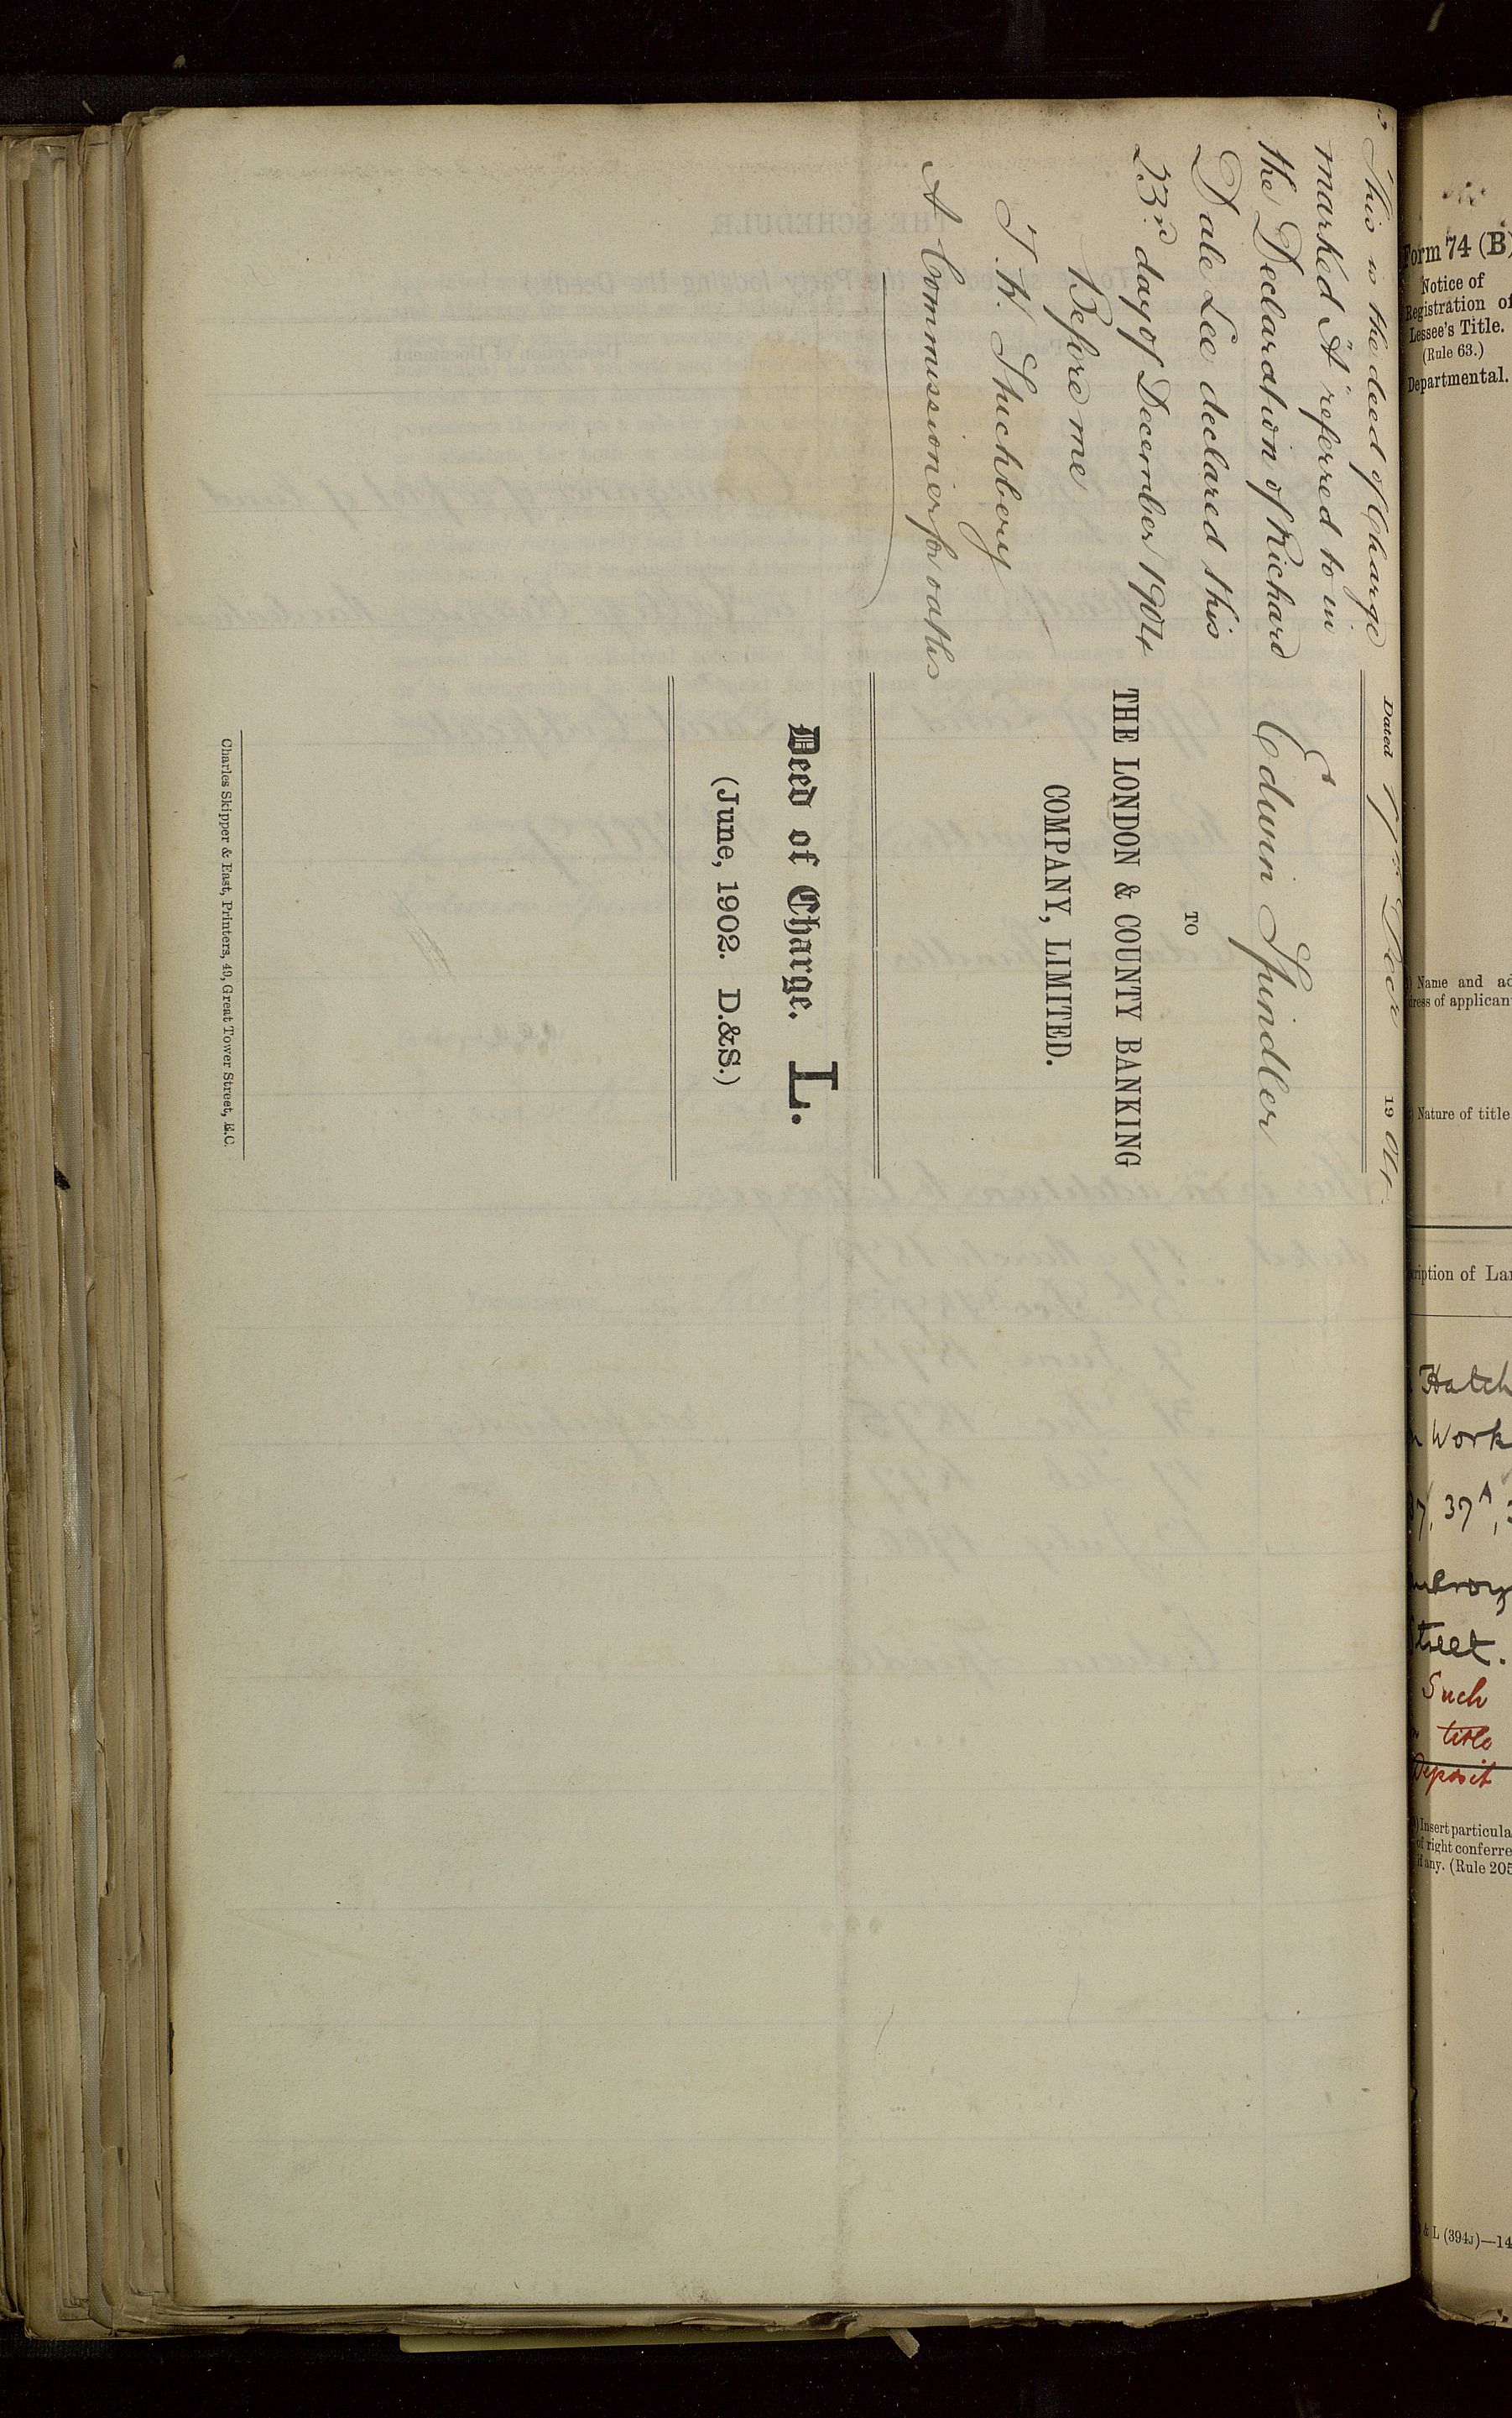 This is the deed of Charge
marked "A" referred to in
the Declaration of Richard
Dale Lee declared this
23rd day of December 1904
Before me
T. H. Stuchbery
A Commissioner for oaths
Dated 17th Decr 1904.
Edwin Spindler
TO
THE LONDON & COUNTY BANKING
COMPANY, LIMITED.
Deed of Charge. L.
(June, 1902. D.&S.)
Charles Skipper & East, Printers, 49, Great Tower Street, E.C.
Form 74 (B)
Notice of
Registration of
Lessee's Title.
(Rule 63.)
Departmental.
Name and ad
dress of applican
Nature of title
ription of La
Hatch
Work
37, 37A,
Street.
Such
title
Deposit
Insert particula
of right conferre
if any. (Rule 205
& L (394J)—14